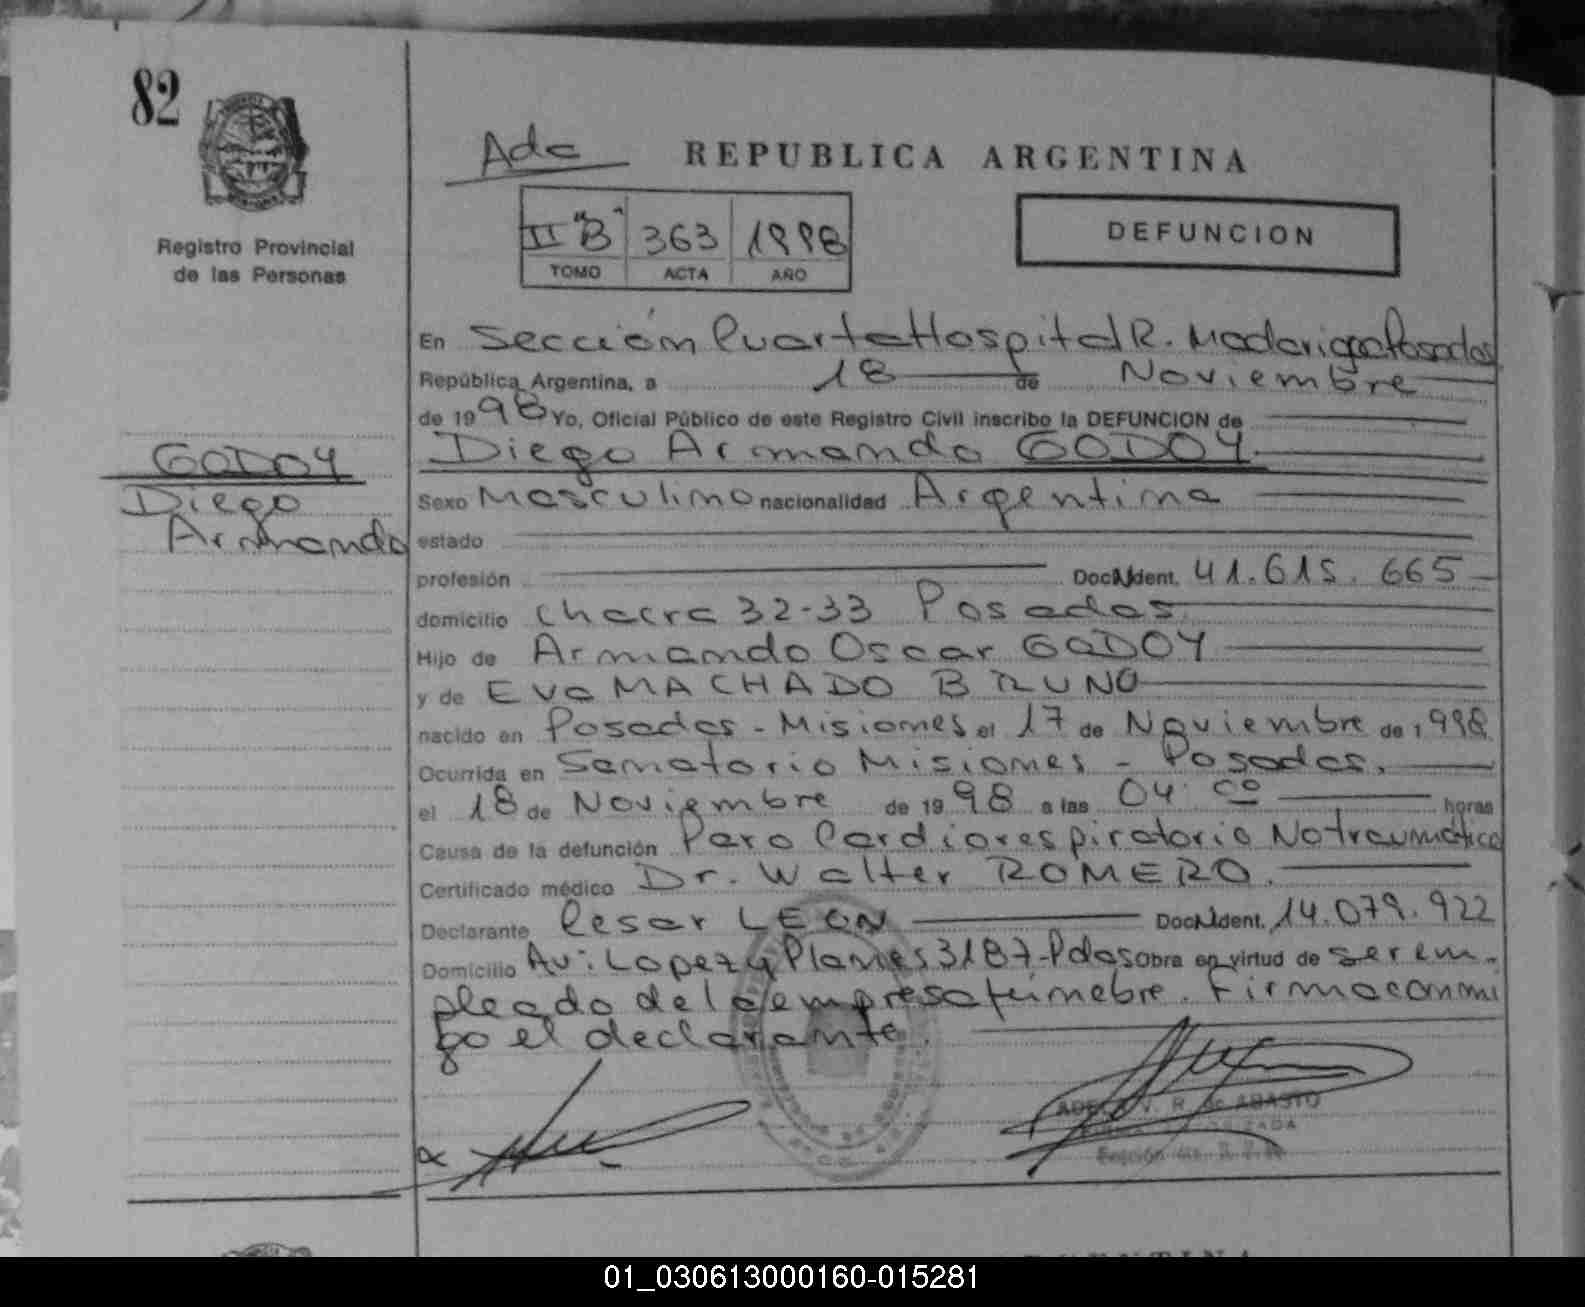 82
Ada
REPUBLICA ARGENTINA
II "B" 363 1998
TOMO ACTA AÑO
DEFUNCION
Registro Provincial
de las Personas
En Sección Cuarta Hospital R. Madariaga Posadas
República Argentina, a 18 de Noviembre
de 1998 Yo, Oficial Público de este Registro Civil inscribo la DEFUNCION de
GODOY
Diego
Armando
Diego Armando GODOY
Sexo Masculino nacionalidad Argentina
estado
profesión Doc. Ident. 41.615.665
domicilio Chacra 32-33 Posadas
Hijo de Armando Oscar GODOY
y de Eva MACHADO BRUNO
nacido en Posadas - Misiones el 17 de Noviembre de 1998
Ocurrida en Sanatorio Misiones - Posadas.
el 18 de Noviembre de 1998 a las 04 co horas
Causa de la defunción Paro Cardiorespiratorio No traumático
Certificado médico Dr. Walter ROMERO.
Declarante Cesar LEON Doc. Ident. 14.079.922
Domicilio Av: Lopez y Planes 3187-Pdas Obra en virtud de ser em-
pleado de la empresa fúnebre. Firma conmi
go el declarante.
V. R. de ABASTO
01_030613000160-015281